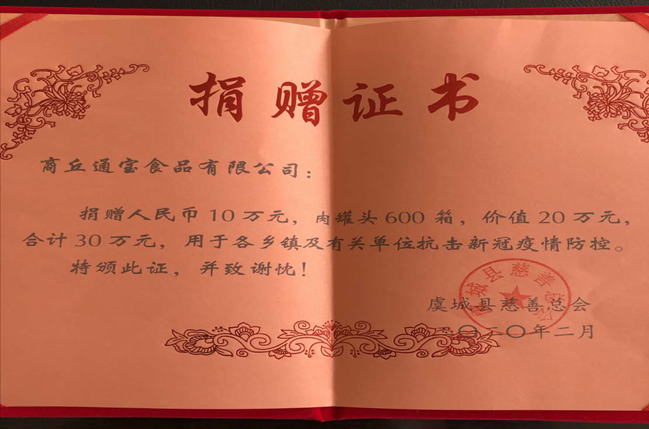 捐赠证书
商丘通宝食品有限公司：
捐赠人民币10万元，肉罐头600箱，价值20万元，
合计30万元，用于各乡镇及有关单位抗击新冠疫情防控。
特颁此证，并致谢忱！
虞城县慈善总会
二〇二〇年二月
虞城县慈善总会